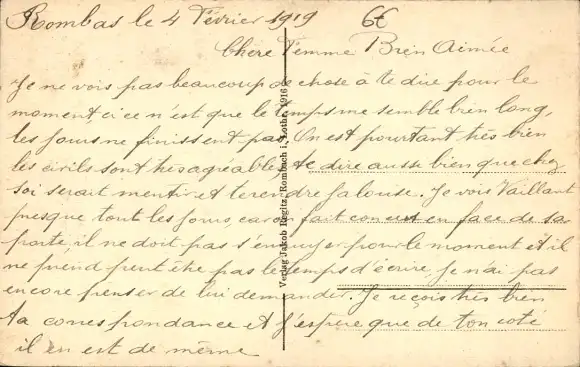 Rombas le 4 Février 1919
6€
Chère Femme Bien Aimée
Je ne vois pas beaucoup de chose à te dire pour le
moment ci ce n'est que le temps me semble bien long,
les jours ne finissent pas. On est pourtant très bien
les civils sont très agréable te dire aussi bien que chez
soi serait mentir et te rendre jalouse. Je vois Vaillant
presque tout les jours, car on fait concert en face de sa
porte, il ne doit pas s'ennuyer pour le moment et il
ne prend peut être pas le temps d'écrire, je n'ai pas
encore penser de lui demander. Je reçois très bien
ta correspondance et j'espère que de ton coté
il en est de même
Verlag Jakob Regitz, Rombach i. Lothr. 1916